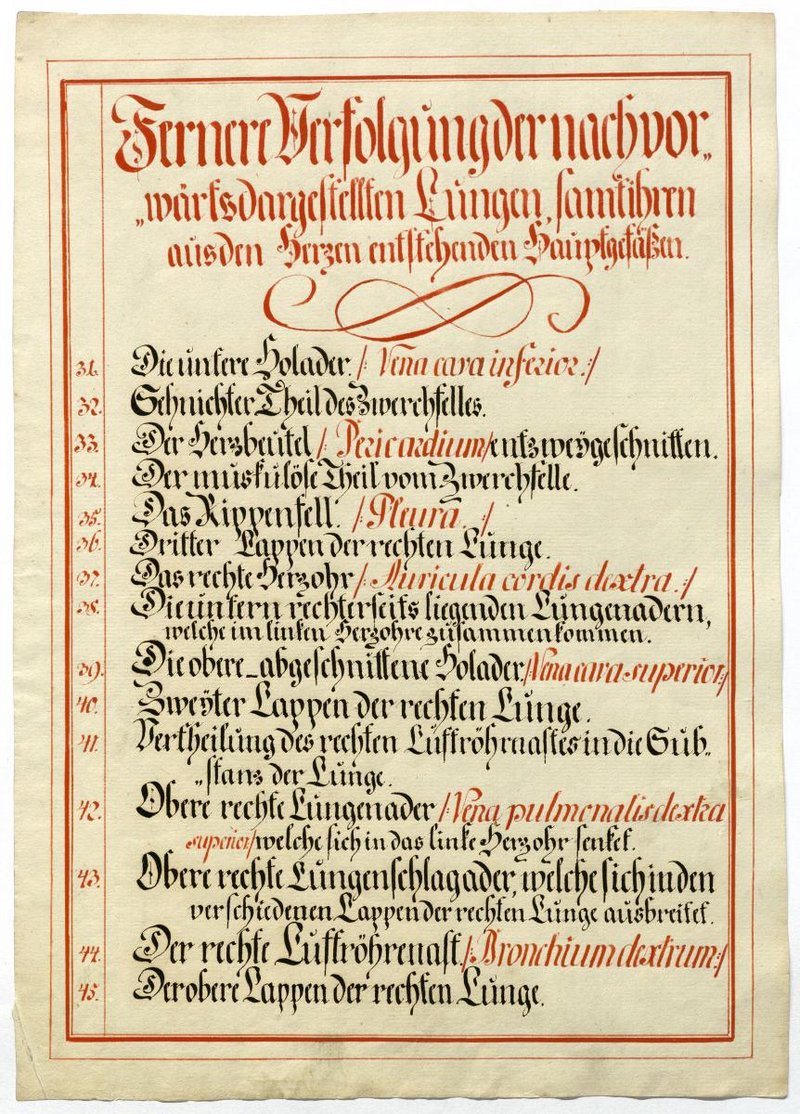 Fernere Verfolgung der nach vor„
„wärts dargestellten Lungen, samt ihren
aus den Herzen entstehenden Hauptgefäßen.
31. Die untere Holader. /: Vena cava inferior. :/
32. Sehnichter Theil des Zwerchfelles.
33. Der Herzbeutel /: Pericardium :/ entzweygeschnitten.
34. Der muskulöse Theil vom Zwerchfelle.
35. Das Rippenfell. /: Pleura. :/
36. Dritter Lappen der rechten Lunge.
37. Das rechte Herzohr /: Auricula cordis dextra. :/
38. Die untern rechterseits liegenden Lungenadern,
welche im linken Herzohre zusammenkommen.
39. Die obere_abgeschnittene Holader. /: Vena cava superior :/
40. Zweyter Lappen der rechten Lunge.
41. Vertheilung des rechten Luftröhrnastes in die Sub„
„stanz der Lunge.
42. Obere rechte Lungenader /: Vena pulmonalis dextra
superior :/ welche sich in das linke Herzohr senket.
43. Obere rechte Lungenschlagader, welche sich in den
verschiedenen Lappen der rechten Lunge ausbreitet.
44. Der rechte Luftröhrenast. /: Bronchium dextrum :/
45. Der obere Lappen der rechten Lunge.